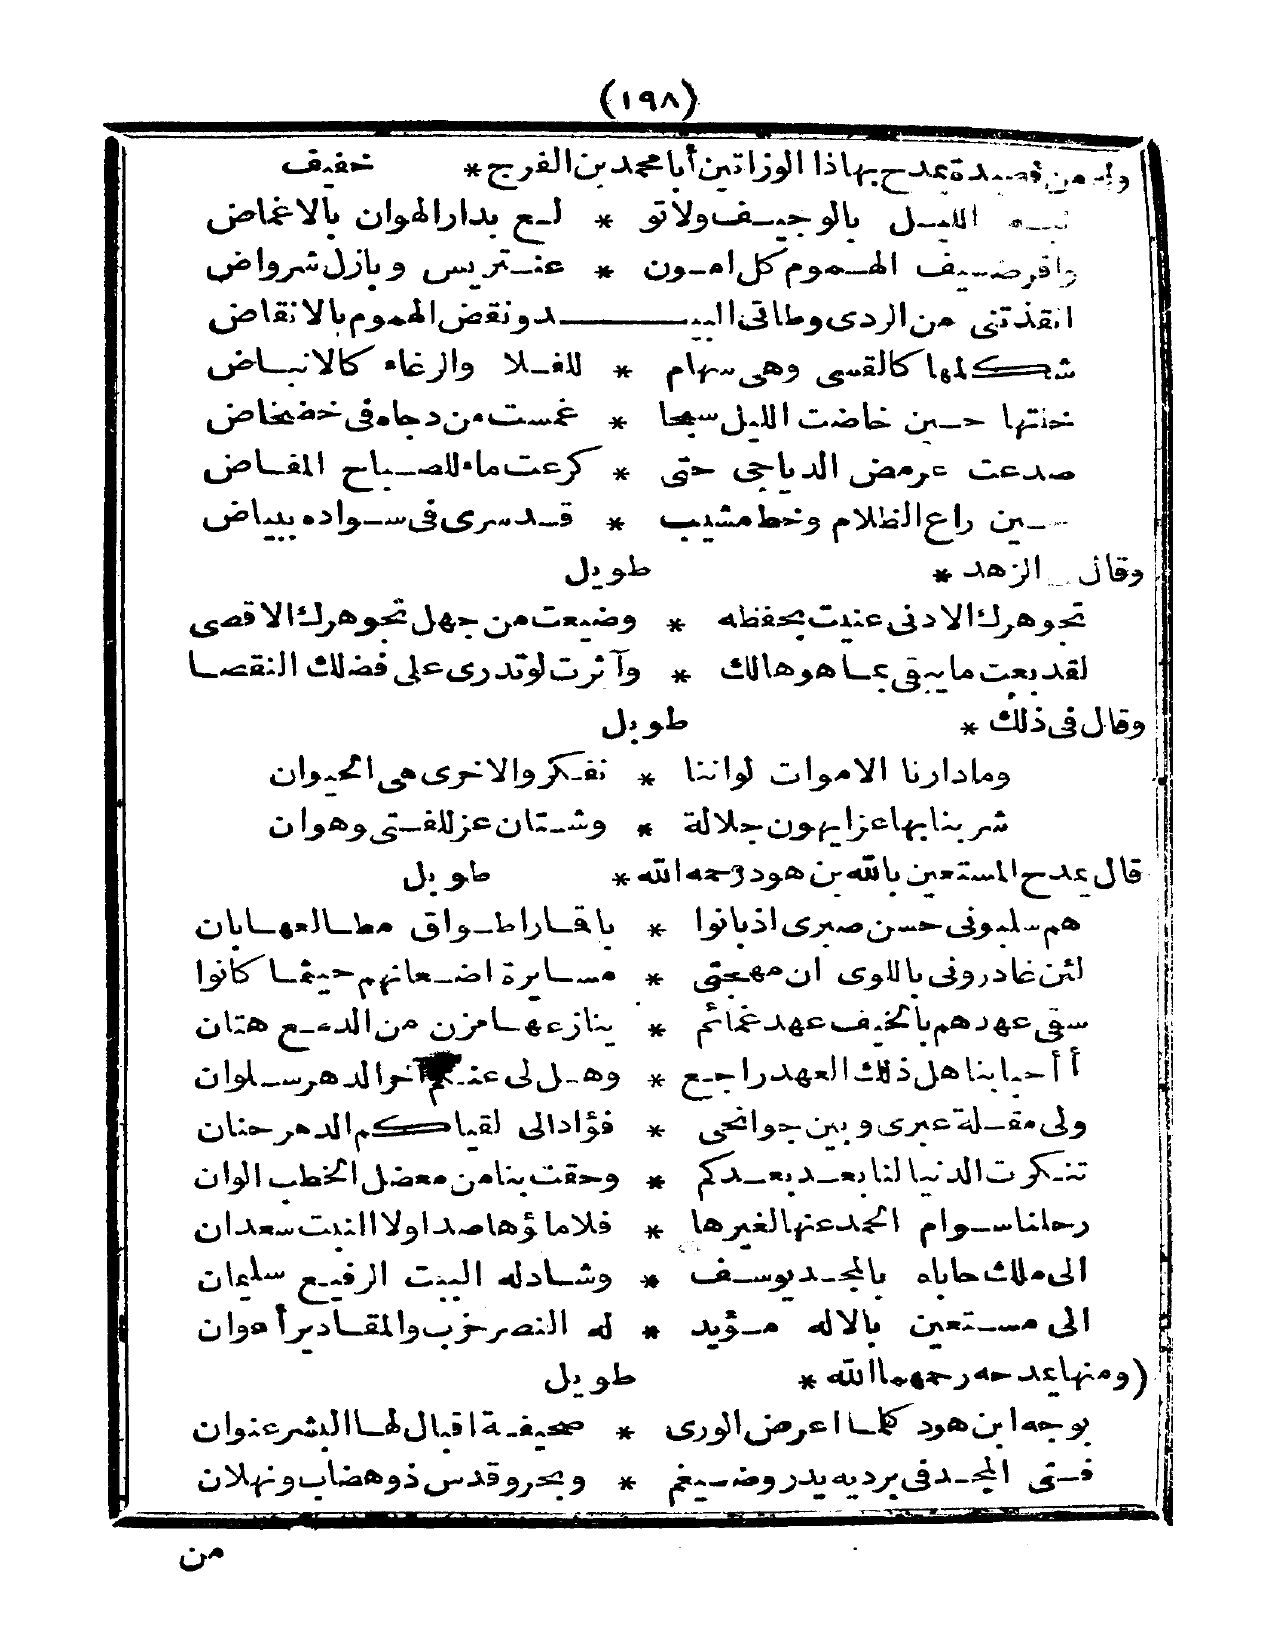 (١٩٨)
وله من قصيدة يمدح بها ذا الوزارتين أبا محمد بن الفرج * خفيف
نبه الليل بالوجيف ولا تو * لع بدار الهوان بالاغماض
واقر ضيف الهموم كل امون * عنتريس وبازل شرواض
انقذتنى من الردى وطاقى البيـــد ونقض الهموم بالانقاض
شكلها كالقسى وهى سهام * للفلا والرغاء كالانباض
خنتها حين خاضت الليل سبحا * غمست من دجاه فى خضخاض
صدعت عرمض الدياجى حتى * كرعت ماء للصباح المفاض
حين راع الظلام وخط مشيب * قد سرى فى سواده ببياض
وقال الزهد * طويل
تجوهرك الادنى عنيت بحفظه * وضيعت من جهل تجوهرك الاقصى
لقد بعت ما يبقى بما هو هالك * وآثرت لو تدرى على فضلك النقصا
وقال فى ذلك * طويل
وما دارنا الاموات لو اننا * نفكر والاخرى هى الحيوان
شربنا بها عزا بهون جلالة * وشتان عز للفتى وهوان
قال يمدح المستعين بالله بن هود رحمه الله * طويل
هم سلبونى حسن صبرى اذ بانوا * باقمار اطواق مطالعها بان
لئن غادرونى باللوى ان مهجتى * مسايرة اضعانهم حيثما كانوا
سقى عهدهم بالخيف عهد غمائم * ينازعها مزن من الدمع هتان
أ أحبابنا هل ذلك العهد راجع * وهل لى عنكم آخر الدهر سلوان
ولى مقلة عبرى وبين جوانحى * فؤاد الى لقياكم الدهر حنان
تنكرت الدنيا لنا بعد بعدكم * وحفت بنا من معضل الخطب الوان
رحلنا سوام الحمد عنها لغيرها * فلا ماؤها صدا ولا النبت سعدان
الى ملك حاباه بالمجد يوسف * وشاد له البيت الرفيع سليمان
الى مستعين بالاله مؤيد * له النصر حزب والمقادير أعوان
(ومنها يمدحه رحمهما الله * طويل
بوجه ابن هود كلما اعرض الورى * صحيفة اقبال لها البشر عنوان
فتى المجد فى برديه بدر وضيغم * وبحر وقدس ذو هضاب ونهلان
من